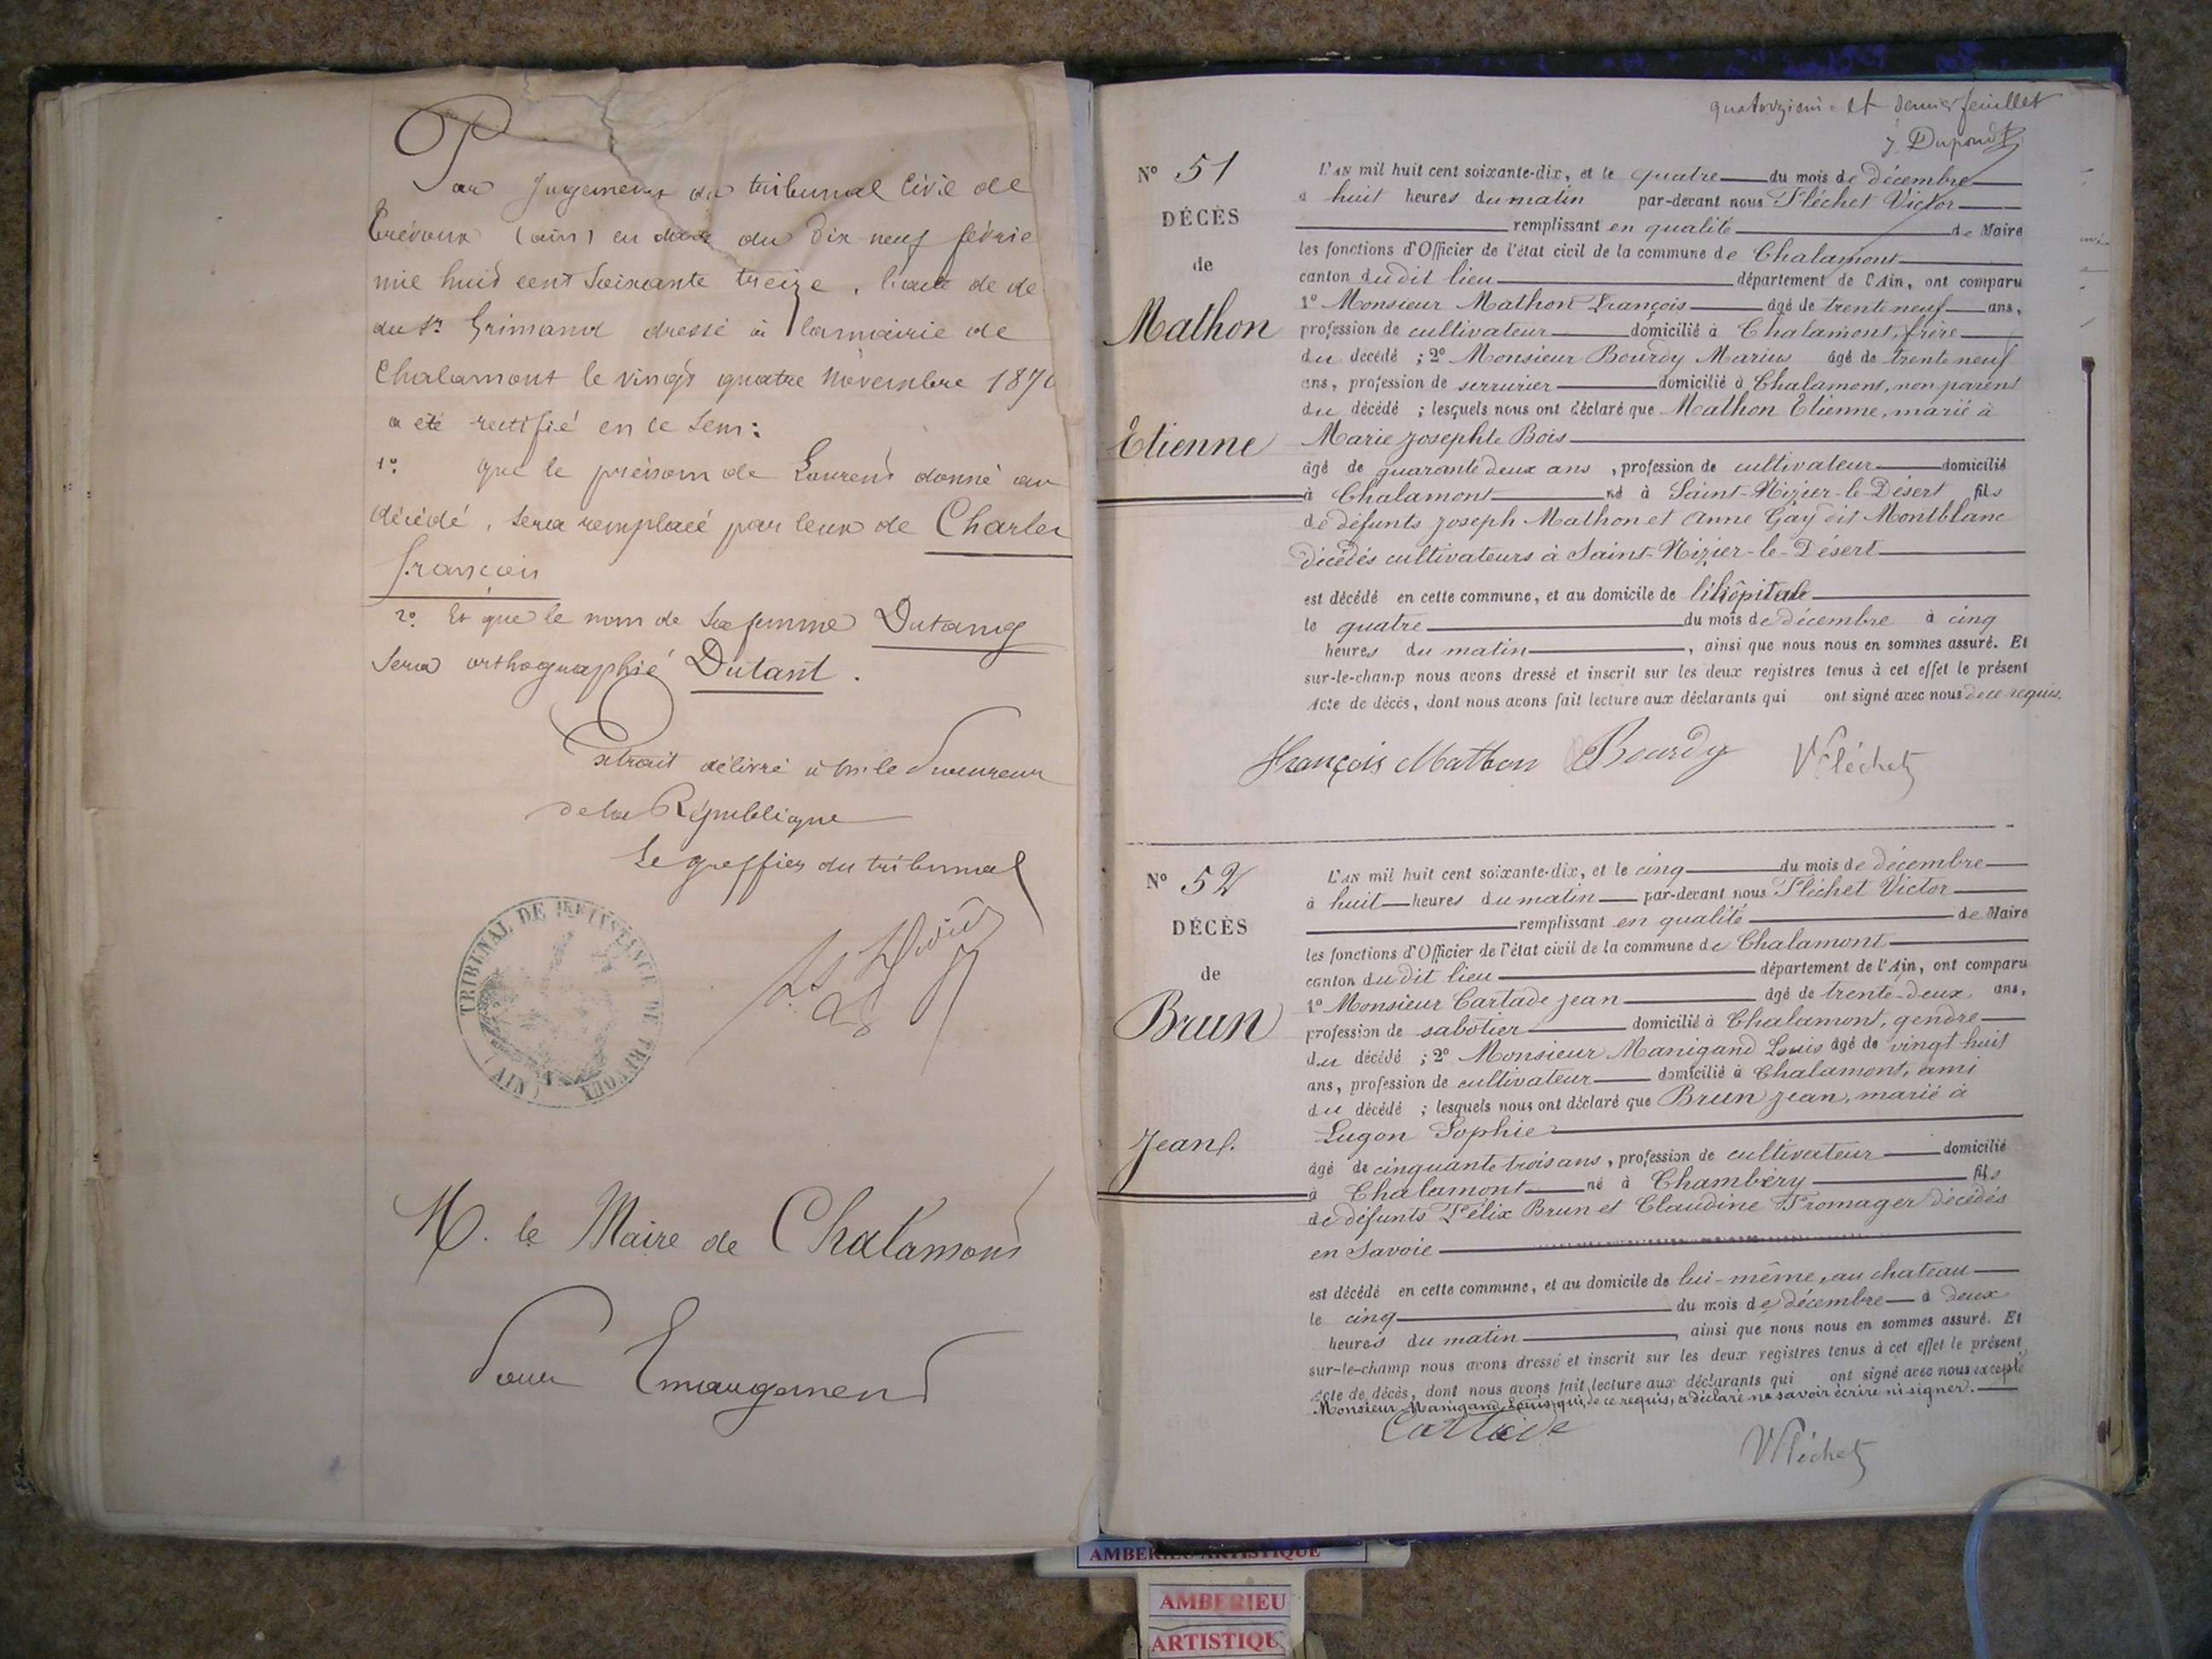 Par Jugement du tribunal Civil de
Trévoux (ain) en date du Dix neuf févrie
mil huit cent Soixante treize, l'acte de dé
du Sr Grimand dressé à la mairie de
Chalamont le vingt quatre Novembre 1870
a été rectifié en ce sens:
1º que le prénom de Laurent donné au
décédé, sera remplacé par ceux de Charles
françois
2º. Et que le nom de sa femme Dutang
Sera orthographié Dutant.
Extrait délivré à M. le Procureur
de la République
Le greffier du tribunal
TRIBUNAL DE 1RE INSTANCE DE TREVOUX (AIN)
M. le Maire de Chalamont
Pour Emargement
quatorzième et dernier feuillet
J Dupond
Nº 51
DÉCÈS
de
Mathon
Etienne
L'AN mil huit cent soixante-dix, et le quatre du mois de décembre
à huit heures du matin par-devant nous Fléchet Victor
remplissant en qualité de Maire
les fonctions d'Officier de l'état civil de la commune de Chalamont
canton du dit lieu département de l'Ain, ont comparu
1º Monsieur Mathon François âgé de trente neuf ans,
profession de cultivateur domicilié à Chalamont, frère
du décédé ; 2º Monsieur Bourdy Marius âgé de trente neuf
ans, profession de serrurier domicilié à Chalamont, non parent
du décédé ; lesquels nous ont déclaré que Mathon Etienne, marié à
Marie Josephte Bois
âgé de quarante deux ans, profession de cultivateur domicilié
à Chalamont né à Saint-Nizier-le-Désert fils
de défunts Joseph Mathon et Anne Gay dit Montblanc
décédés cultivateurs à Saint-Nizier-le-Désert
est décédé en cette commune, et au domicile de l'hôpital
le quatre du mois de décembre à cinq
heures du matin, ainsi que nous nous en sommes assuré. Et
sur-le-champ nous avons dressé et inscrit sur les deux registres tenus à cet effet le présent
Acte de décès, dont nous avons fait lecture aux déclarants qui ont signé avec nous de ce requis.
François Mathon Bourdy V Fléchet
Nº 52
DÉCÈS
de
Brun
Jean.
L'AN mil huit cent soixante-dix, et le cinq du mois de décembre
à huit heures du matin par-devant nous Fléchet Victor
remplissant en qualité de Maire
les fonctions d'Officier de l'état civil de la commune de Chalamont
canton du dit lieu département de l'Ain, ont comparu
1º Monsieur Cartade Jean âgé de trente-deux ans,
profession de sabotier domicilié à Chalamont, gendre
du décédé ; 2º Monsieur Manigand Louis âgé de vingt huit
ans, profession de cultivateur domicilié à Chalamont, ami
du décédé ; lesquels nous ont déclaré que Brun Jean, marié à
Lugon Sophie
âgé de cinquante trois ans, profession de cultivateur domicilié
à Chalamont né à Chambéry fils
de défunts Félix Brun et Claudine Fromager décédés
en Savoie
est décédé en cette commune, et au domicile de lui-même, au chateau
le cinq du mois de décembre à deux
heures du matin, ainsi que nous nous en sommes assuré. Et
sur-le-champ nous avons dressé et inscrit sur les deux registres tenus à cet effet le présent
Acte de décès, dont nous avons fait lecture aux déclarants qui ont signé avec nous excepté
Monsieur Manigand Louis qui, de ce requis, a déclaré ne savoir écrire ni signer.
Cartade
V Fléchet
AMBERIEU ARTISTIQUE
AMBERIEU
ARTISTIQU